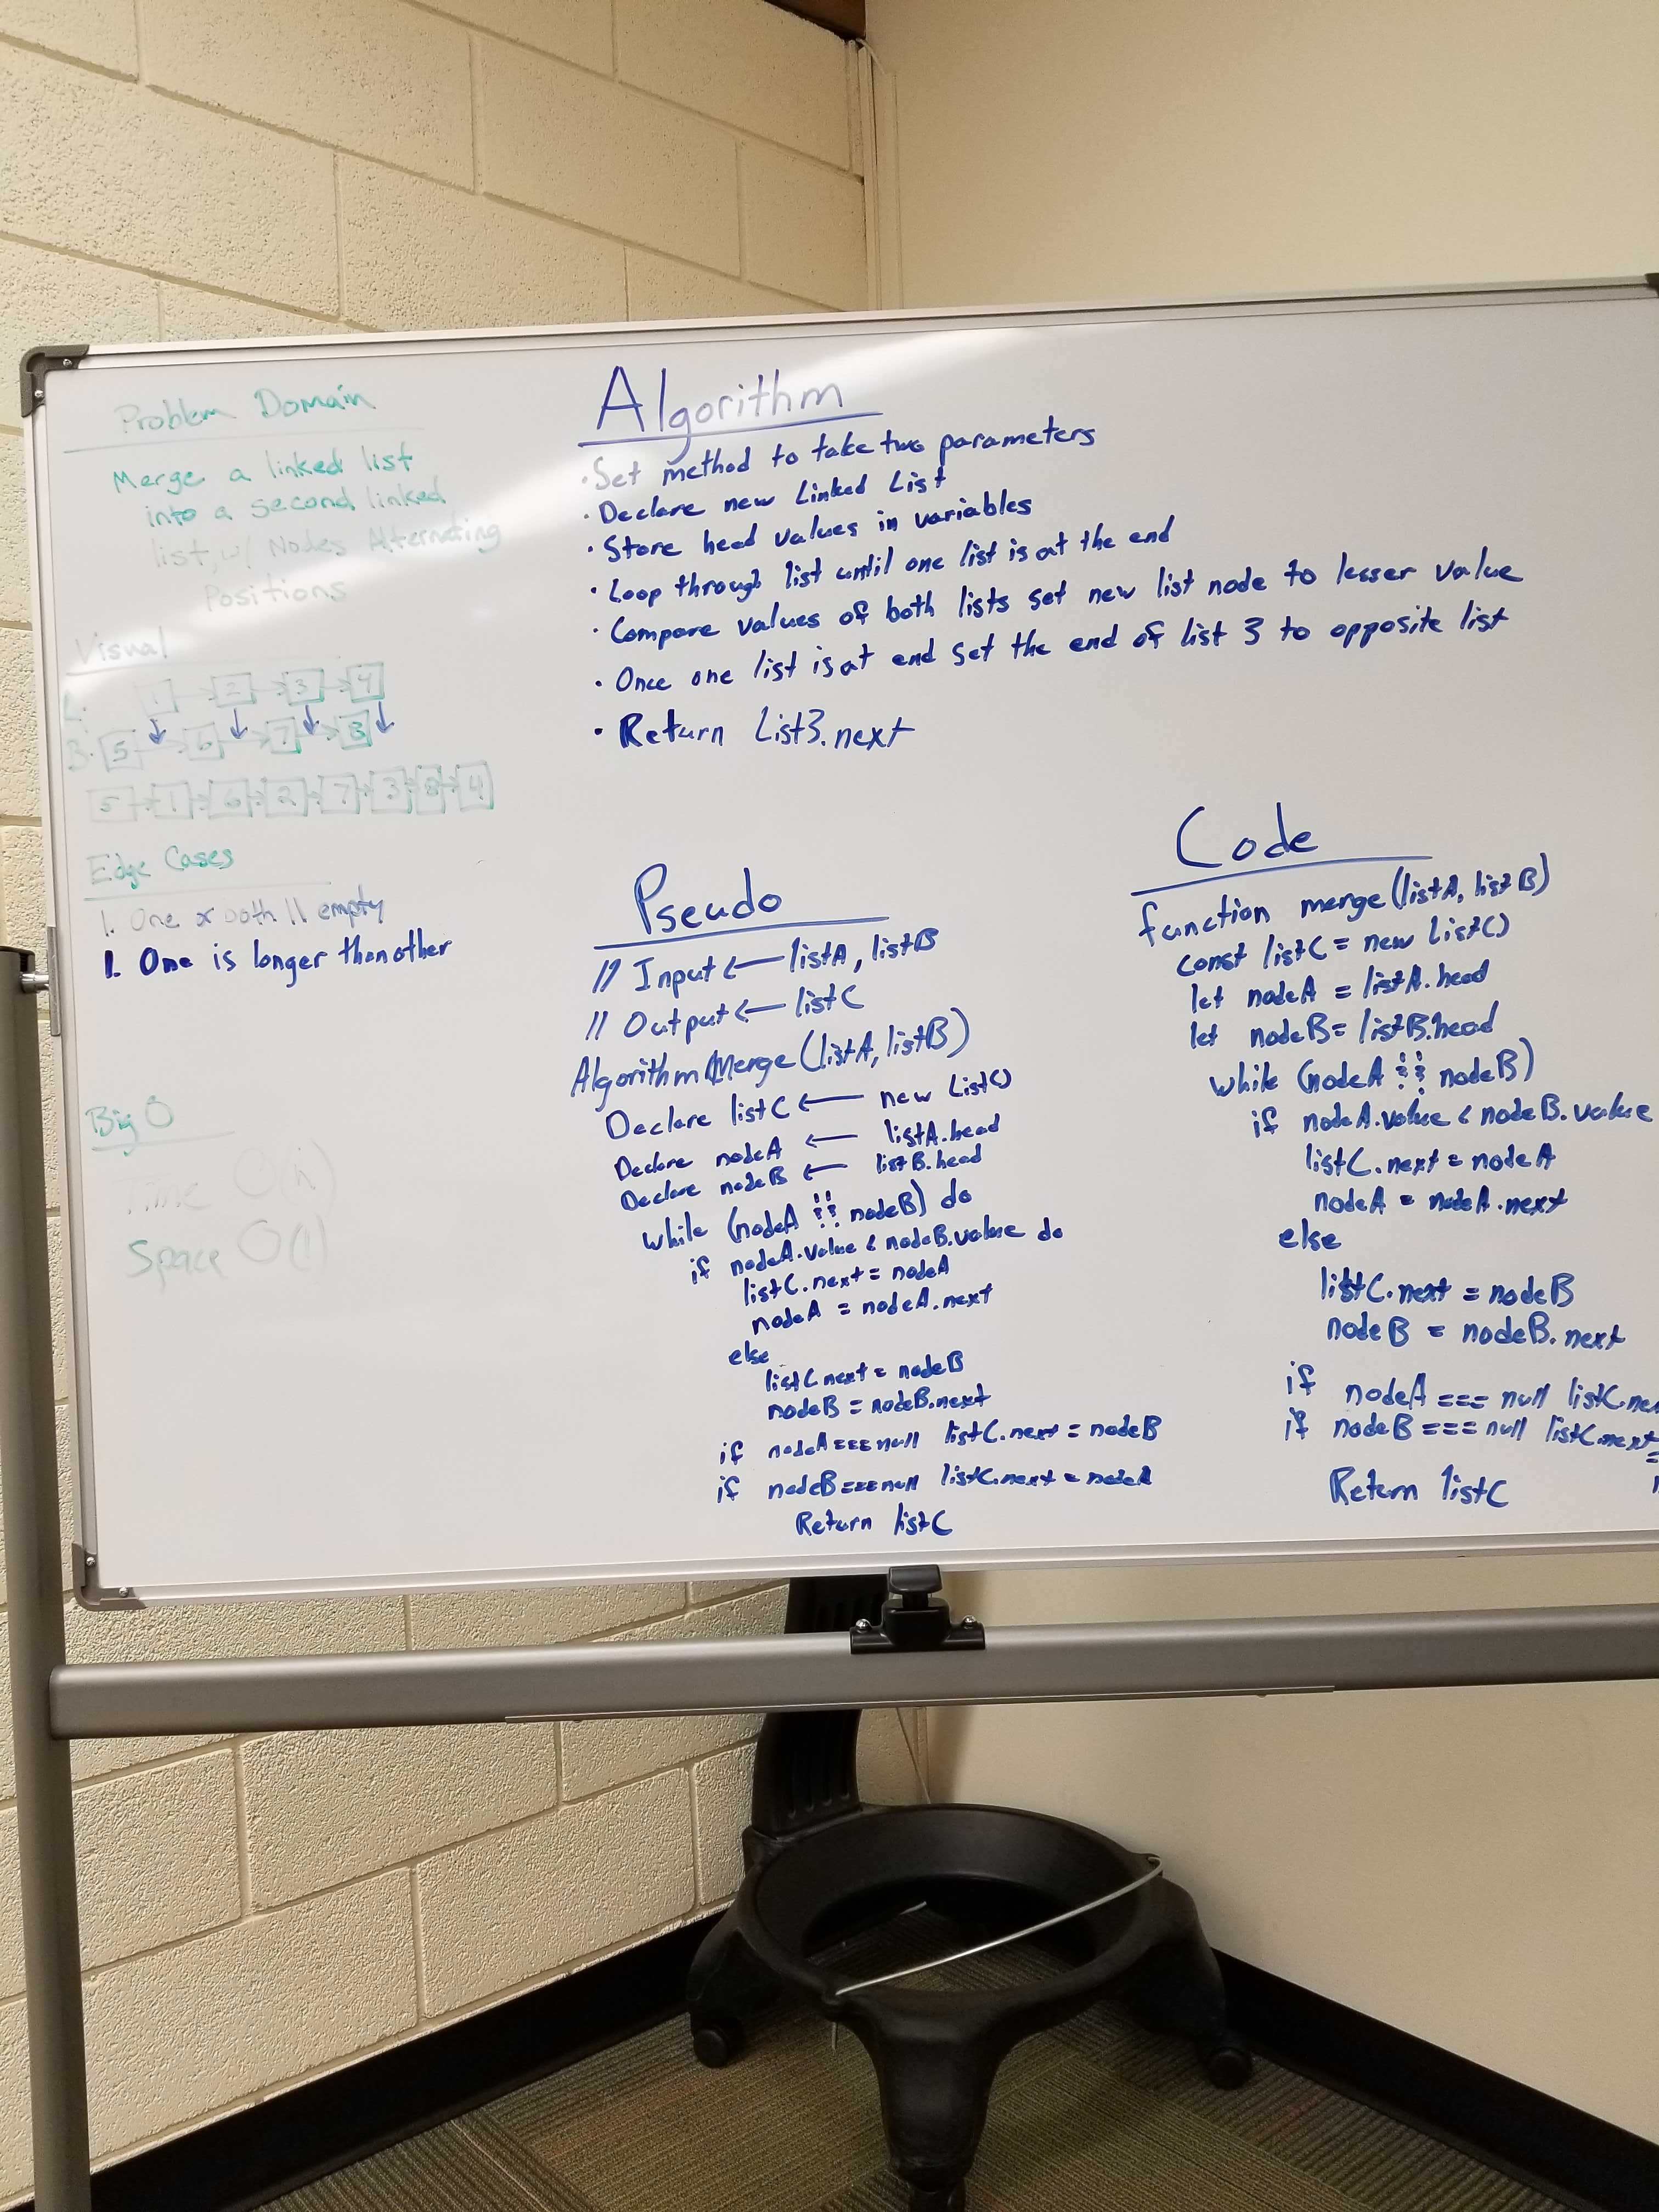 Problem Domain
Merge a linked list
into a second linked
list, w/ Nodes Alternating
Positions
Visual
1 2 3 4
B. 5 6 7 8
5 1 6 2 7 3 8 4
Edge Cases
1. One or both ll empty
1. One is longer than other
Big O
Time O(n)
Space O(1)
Algorithm
· Set method to take two parameters
· Declare new Linked List
· Store head values in variables
· Loop through list until one list is at the end
· Compare values of both lists set new list node to lesser value
· Once one list is at end set the end of list 3 to opposite list
· Return List3.next
Pseudo
// Input ← listA, listB
// Output ← listC
Algorithm Merge(listA, listB)
Declare listC ← new List()
Declare nodeA ← listA.head
Declare nodeB ← listB.head
while (nodeA && nodeB) do
if nodeA.value < nodeB.value do
listC.next = nodeA
nodeA = nodeA.next
else
listC.next = nodeB
nodeB = nodeB.next
if nodeA === null listC.next = nodeB
if nodeB === null listC.next = nodeA
Return listC
Code
function merge(listA, listB)
const listC = new List()
let nodeA = listA.head
let nodeB = listB.head
while (nodeA && nodeB)
if nodeA.value < nodeB.value
listC.next = nodeA
nodeA = nodeA.next
else
listC.next = nodeB
nodeB = nodeB.next
if nodeA === null listC.nex
if nodeB === null listC.next =
Return listC